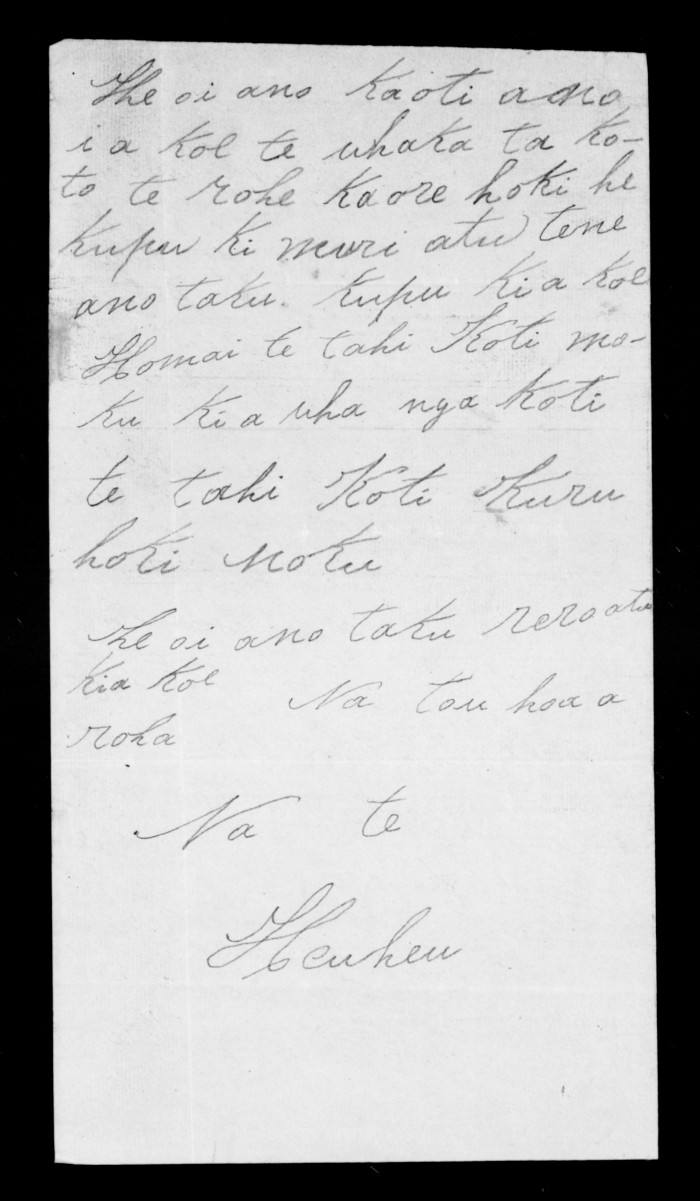 He oi ano Kaoti ano
i a koe te whaka ta ko-
to te rohe Kaore hoki he
Kupu Ki muri atu tene
ano taku. Kupu Ki a koe
Homai te tahi Koti mo-
ku Ki a wha nga Koti
te tahi Koti Kuru
hoki moku
He oi ano taku rero atu
Kia Koe Na tou hoa a
roha
Na te
Heuheu